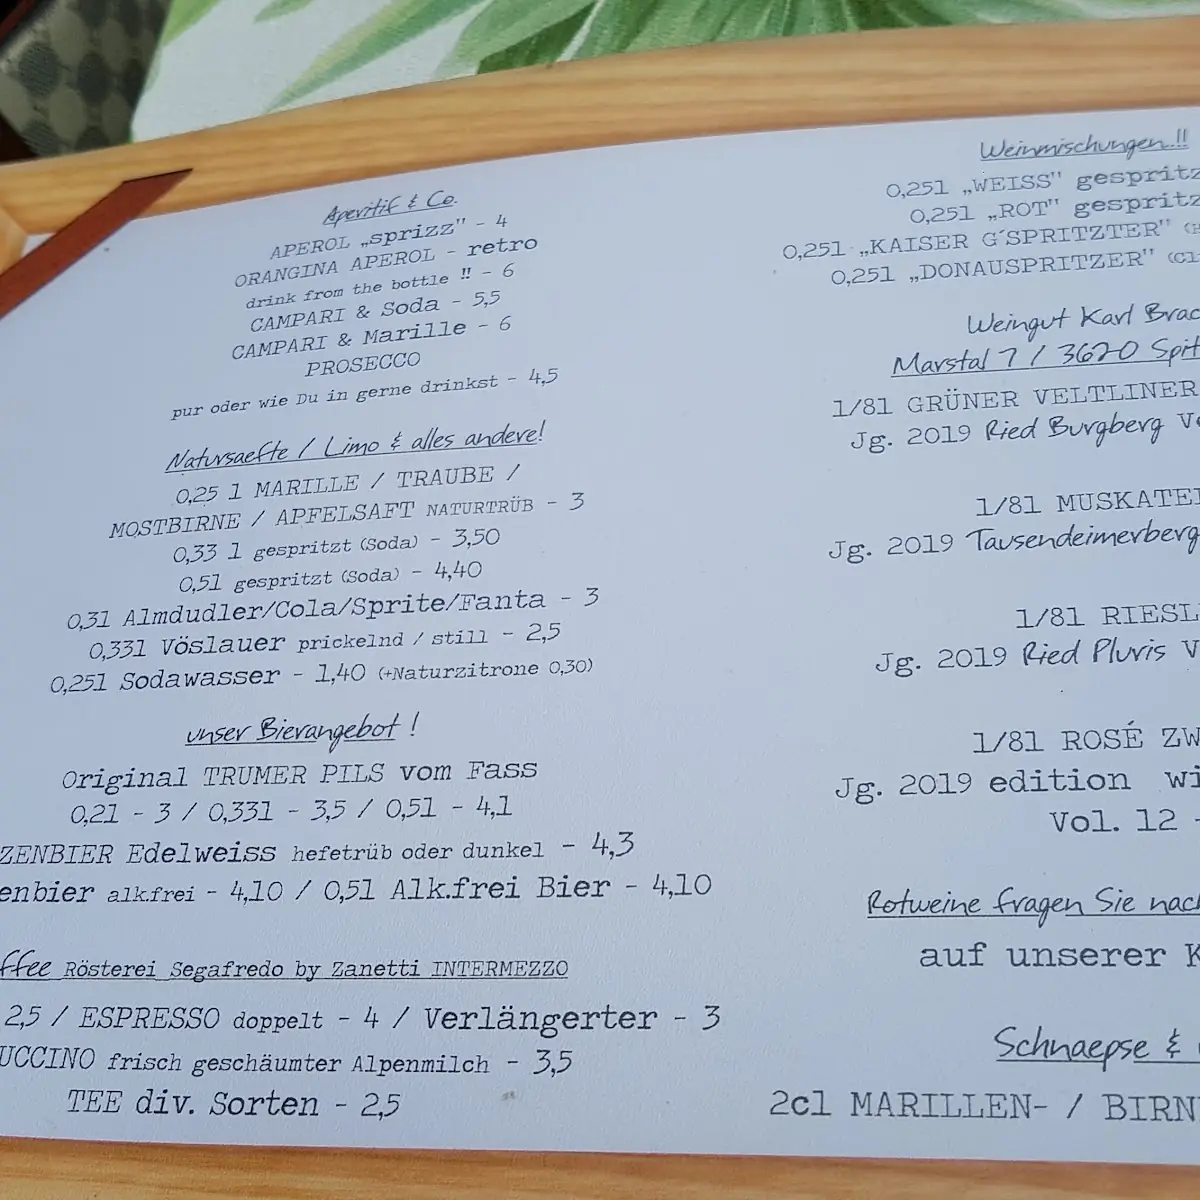 Aperitif & Co.
APEROL „sprizz" - 4
ORANGINA APEROL - retro
drink from the bottle !! - 6
CAMPARI & Soda - 5,5
CAMPARI & Marille - 6
PROSECCO
pur oder wie Du in gerne drinkst - 4,5
Natursaefte / Limo & alles andere!
0,25 l MARILLE / TRAUBE /
MOSTBIRNE / APFELSAFT NATURTRÜB - 3
0,33 l gespritzt (Soda) - 3,50
0,5l gespritzt (Soda) - 4,40
0,3l Almdudler/Cola/Sprite/Fanta - 3
0,33l Vöslauer prickelnd / still - 2,5
0,25l Sodawasser - 1,40 (+Naturzitrone 0,30)
unser Bierangebot !
Original TRUMER PILS vom Fass
0,2l - 3 / 0,33l - 3,5 / 0,5l - 4,1
ZENBIER Edelweiss hefetrüb oder dunkel - 4,3
enbier alk.frei - 4,10 / 0,5l Alk.frei Bier - 4,10
ffee Rösterei Segafredo by Zanetti INTERMEZZO
2,5 / ESPRESSO doppelt - 4 / Verlängerter - 3
UCCINO frisch geschäumter Alpenmilch - 3,5
TEE div. Sorten - 2,5
Weinmischungen..!!
0,25l „WEISS" gespritz
0,25l „ROT" gespritz
0,25l „KAISER G´SPRITZTER"
0,25l „DONAUSPRITZER"
Weingut Karl Brac
Marstal 7 / 3620 Spit
1/8l GRÜNER VELTLINER
Jg. 2019 Ried Burgberg
1/8l MUSKATE
Jg. 2019 Tausendeimerberg
1/8l RIESL
Jg. 2019 Ried Pluris V
1/8l ROSÉ ZW
Jg. 2019 edition wi
Vol. 12 -
Rotweine fragen Sie nac
auf unserer K
Schnaepse &
2cl MARILLEN- / BIRN